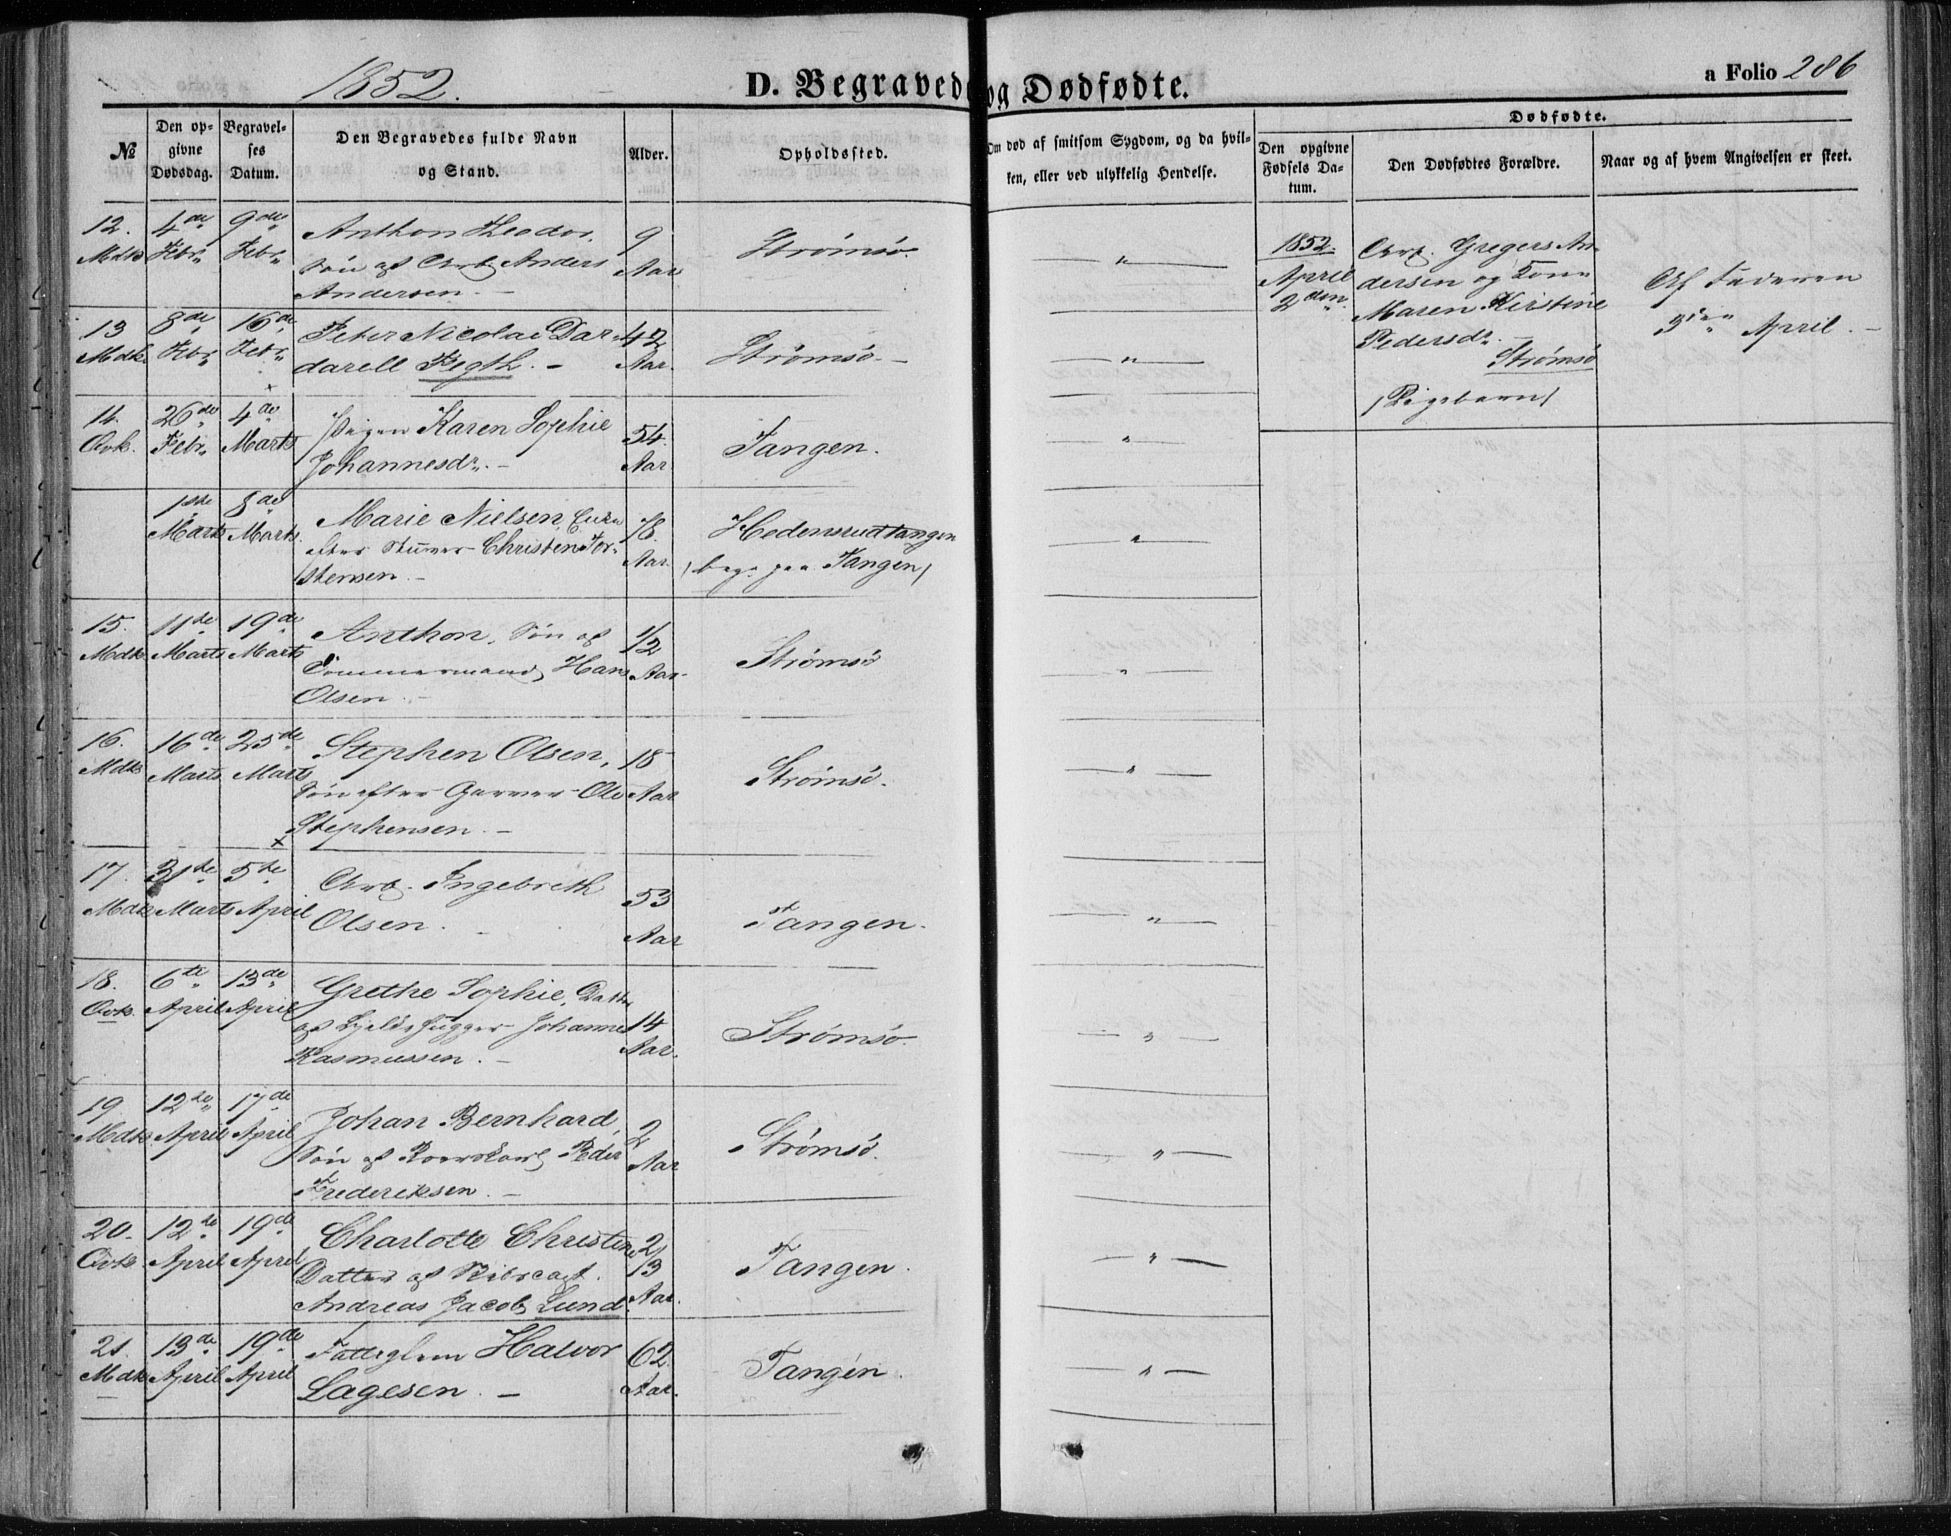 1852.
D. Begravede og Dødfødte.
a Folio 286
№
Den op-
givne
Dødsdag.
Begravel-
ses
Datum.
Den Begravedes fulde Navn
og Stand.
Alder.
Opholdssted.
Om død af smitsom Sygdom, og da hvil-
ken, eller ved ulykkelig Hendelse.
Dødfødte.
Den opgivne
Fødsels Da-
tum.
Den Dødfødtes Forældre.
Naar og af hvem Angivelsen er skeet.
12. Mdk
4de Febr.
9de Febr.
Anthon Theodor,
Søn af Arb. Anders
Andersen. –
9 Aar
Strømsø.
"
13 Mdk.
8de Febr
16de Febr.
Peter Nicolai Dar-
darell Fegth. –
42 Aar.
Strømsø. –
"
14. Qvk.
26de Febr.
4de Marts
Pigen Karen Sophie
Johannesdr. –
54 Aar
Tangen.
"
1ste Marts
8de Marts.
Marie Nielsen, Enke
efter Stuver Christen Tor-
stensen. –
78. Aar.
Hedensrudtangen
/ begr. paa Tangen /
"
15. Mdk
11te Marts
19de Marts
Anthon, Søn af
Tømmermand Hans
Olsen. –
1/2 Aar.
Strømsø
"
16. Mdk
16de Marts
25de Marts
Stephen Olsen,
Søn efter Garver Ole
Stephensen. –
18 Aar
Strømsø.
"
17. Mdk
31te Marts
5te April
Arb. Ingebreth
Olsen.
53 Aar
Tangen.
"
18. Qvk.
6te April
13de April
Grethe Sophie, Datter
af Johannes
Rasmussen. –
14 Aar.
Strømsø.
"
19 Mdk
12te April
17de April
Johan Bernhard,
Søn af Roerskarl Peder
Frederiksen. –
2 Aar
Strømsø.
"
20. Qvk.
12te April
19de April
Charlotte Christine
Datter af Skibscapt.
Andreas Jacob Lund.
2/3 Aar.
Tangen.
"
21. Mdk
13de April
19de April
Fattiglem Halvor
Lagesen. –
62 Aar.
Tangen.
"
1852.
April
2den
Arb. Gregers An-
dersen og Kone
Maren Kirstine
Pedersdr. –
Strømsø
/ Pigebarn /
Af Faderen
3die April. –